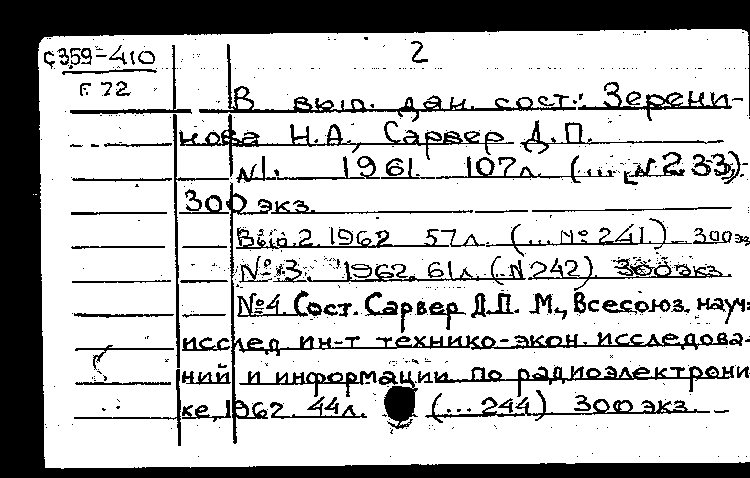 С359-410
2
Г 72
В вып. дан. сост.: Зерени-
нова Н.А., Сарвер Д.П.
№1. 1961. 107л. (... №233)
300 экз.
Вып.2. 1962 57л. (... №241) 300 эк
№3. 1962. 61л. (.. №242) 300 экз.
№4. Сост. Сарвер Д.П. М., Всесоюз. науч.
исслед. ин-т технико-экон. исследова-
ний и информации по радиоэлектрони
ке, 1962. 44л. (... 244) 300 экз.